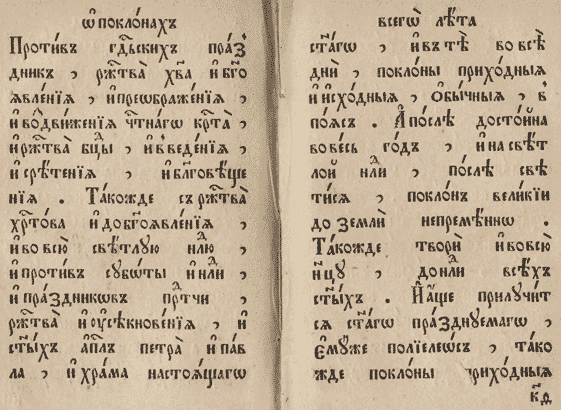 ѡ҆ поклонахъ
Проти́въ гд҇ьскихъ пра́з
дникъ , рж҇тва̀ хв҃а и҆ бг҃о
ѧвле́нїѧ , и҆ преѡбраже́нїѧ ,
и҆ воⷣви́женїѧ чт҇на́гѡ кр҇та̀ ,
и҆ рж҇тва̀ бц҃ы , и҆ введе́нїѧ ,
и҆ срѣ́тенїѧ , и҆ бл҃говѣ́ще
нїѧ . Та́кожде съ рж҇тва̀
хр҇то́ва и҆ до бг҃оѧвле́нїѧ ,
и҆ во всю̀ свѣ́тлую нлⷣю ,
и҆ проти́въ субѡ́ты и҆ нлⷣи ,
и҆ пра́здниковъ прⷣтчи ,
рж҇тва̀ и҆ ѹ҆сѣкнове́нїѧ , и҆
ст҃ы́хъ а҆пⷭ҇лъ петра̀ и҆ па́в
ла , и҆ хра́ма настоѧ́щагѡ
всегѡ̀ лѣ́та
ст҃а́гѡ , и҆ въ тѣ̀ во всѣ̀
дни̑ , покло́ны прихо́дныѧ
и҆ и҆схо́дныѧ , ѻ҆бы́чныѧ , в̾
по́ѧсъ . А҆ по́слѣ досто́йна
во ве́сь го́дъ , и҆ на свѣ́т
лой нлⷣи , по́слѣ свѣ
ти́сѧ , покло́нъ вели́кїи
до землѝ непремѣ́ннѡ .
Та́кожде творѝ и҆ во всю̀
н҃цу , до нлⷣи всѣ́хъ
ст҃ы́хъ . И҆ а҆́ще прилучи́т
сѧ ст҃а́гѡ пра́зднуемагѡ ,
є҆му́же полїеле́ѡсъ , та́ко
жде покло́ны прихо́дныѧ